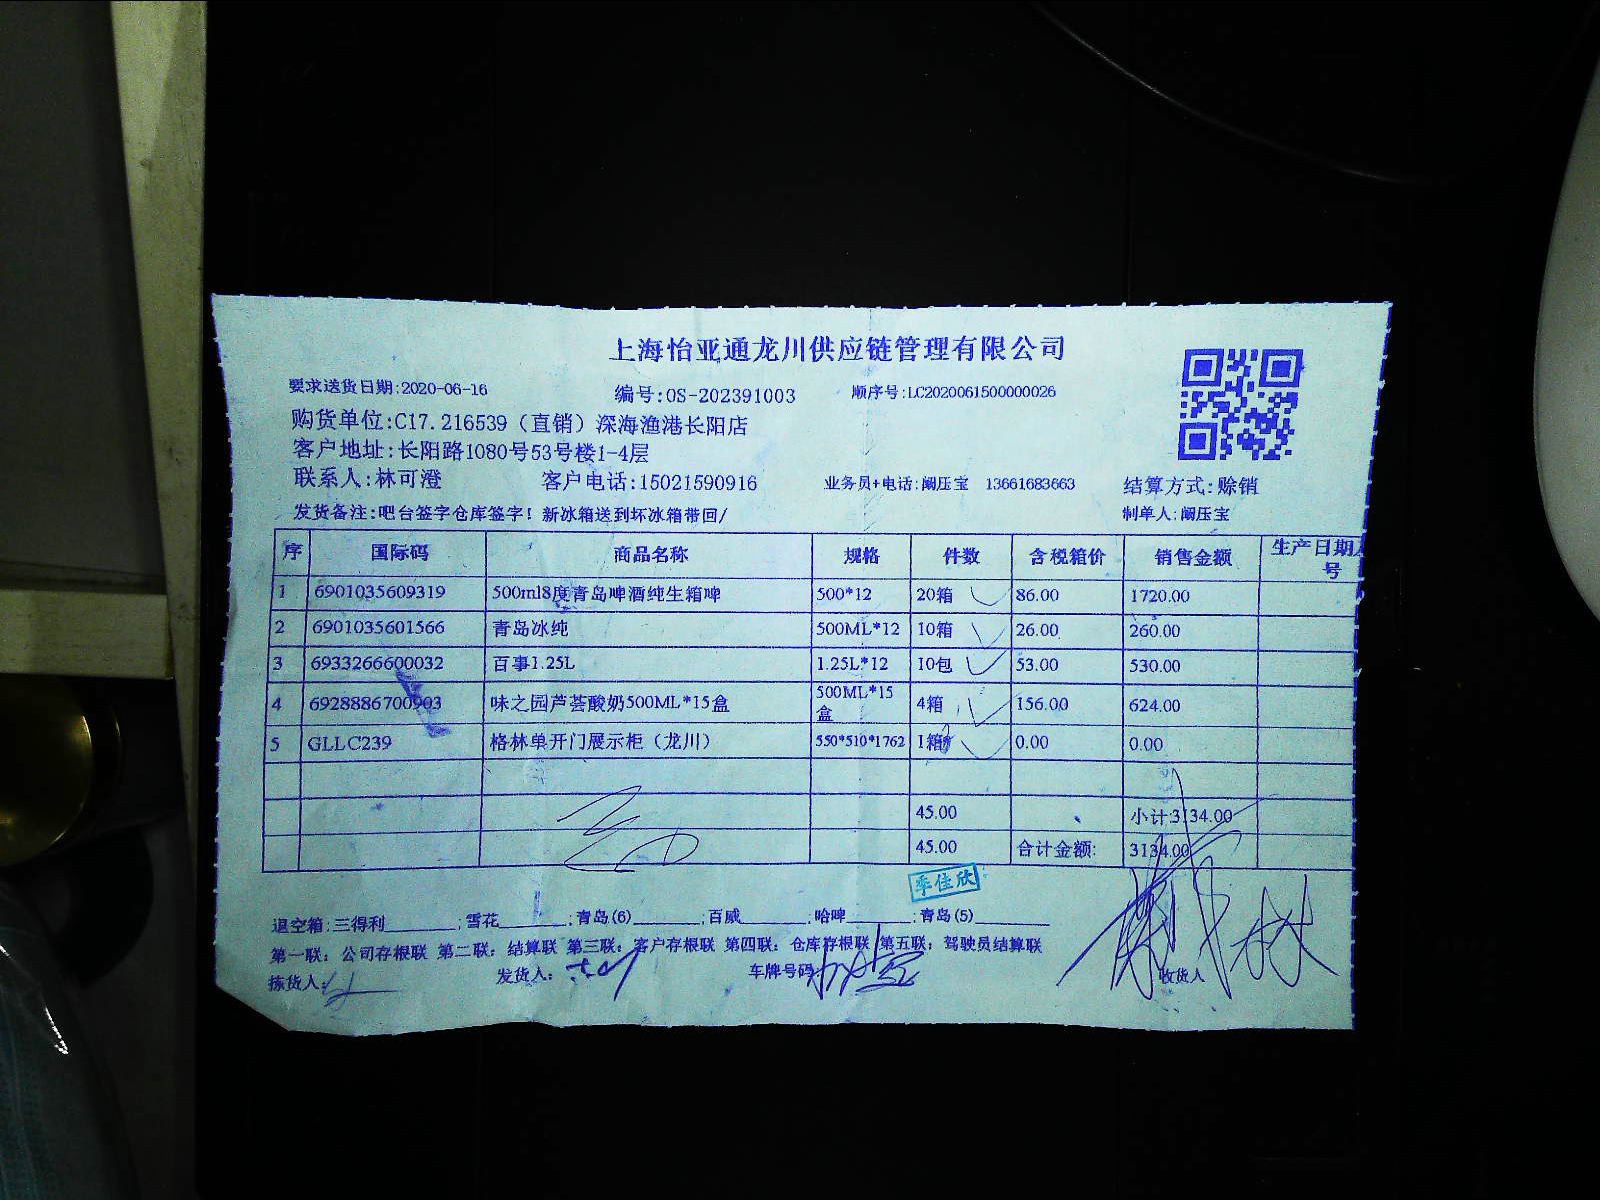 上海怡亚通龙川供应链管理有限公司
要求送货日期:2020-06-16 编号:OS-202391003 顺序号:LC2020061500000026
购货单位:C17.216539（直销）深海渔港长阳店
客户地址:长阳路1080号53号楼1-4层
联系人:林可澄 客户电话:15021590916 业务员+电话:阚压宝 13661683663 结算方式:赊销
发货备注:吧台签字仓库签字！新冰箱送到坏冰箱带回/ 制单人:阚压宝
序 国际码 商品名称 规格 件数 含税箱价 销售金额 生产日期
号
1 6901035609319 500ml8度青岛啤酒纯生箱啤 500*12 20箱 86.00 1720.00
2 6901035601566 青岛冰纯 500ML*12 10箱 26.00 260.00
3 6933266600032 百事1.25L 1.25L*12 10包 53.00 530.00
4 6928886700903 味之园芦荟酸奶500ML*15盒 500ML*15盒 4箱 156.00 624.00
5 GLLC239 格林单开门展示柜（龙川） 550*510*1762 1箱 0.00 0.00
45.00 小计:3134.00
45.00 合计金额: 3134.00
季佳欣
退空箱:三得利________;雪花________;青岛(6)________;百威________;哈啤________;青岛(5)________
第一联：公司存根联 第二联：结算联 第三联：客户存根联 第四联：仓库存根联 第五联：驾驶员结算联
拣货人: 发货人: 车牌号码: 收货人